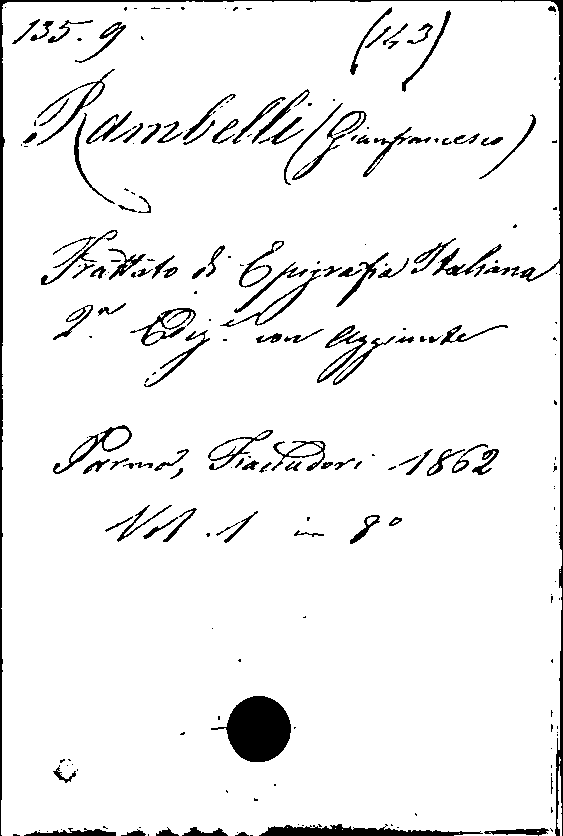 135. g. (143)
Rambelli (Gianfrancesco)
Trattato di Epigrafia Italiana
2.a Ediz.e con Aggiunte
Parma, Fiaccadori 1862
Vol. 1 in 8°